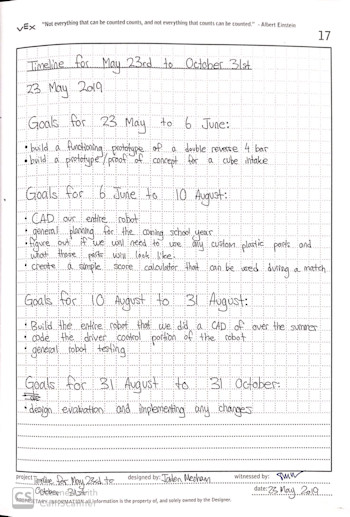 VEX "Not everything that can be counted counts, and not everything that counts can be counted." - Albert Einstein
17
Timeline for May 23rd to October 31st
23 May 2019
Goals for 23 May to 6 June:
• build a functioning prototype of a double reverse 4 bar
• build a prototype/proof of concept for a cube intake
Goals for 6 June to 10 August:
• CAD our entire robot
• general planning for the coming school year
• figure out if we will need to use any custom plastic parts and
what those parts will look like.
• create a simple score calculator that can be used during a match
Goals for 10 August to 31 August:
• Build the entire robot that we did a CAD of over the summer
• code the driver control portion of the robot
• general robot testing
Goals for 31 August to 31 October:
• design evaluation and implementing any changes
project: Timeline for May 23rd to designed by: witnessed by:
October 31st date: 23 May 2019
information is the property of, and solely owned by the Designer.
CS CamScanner